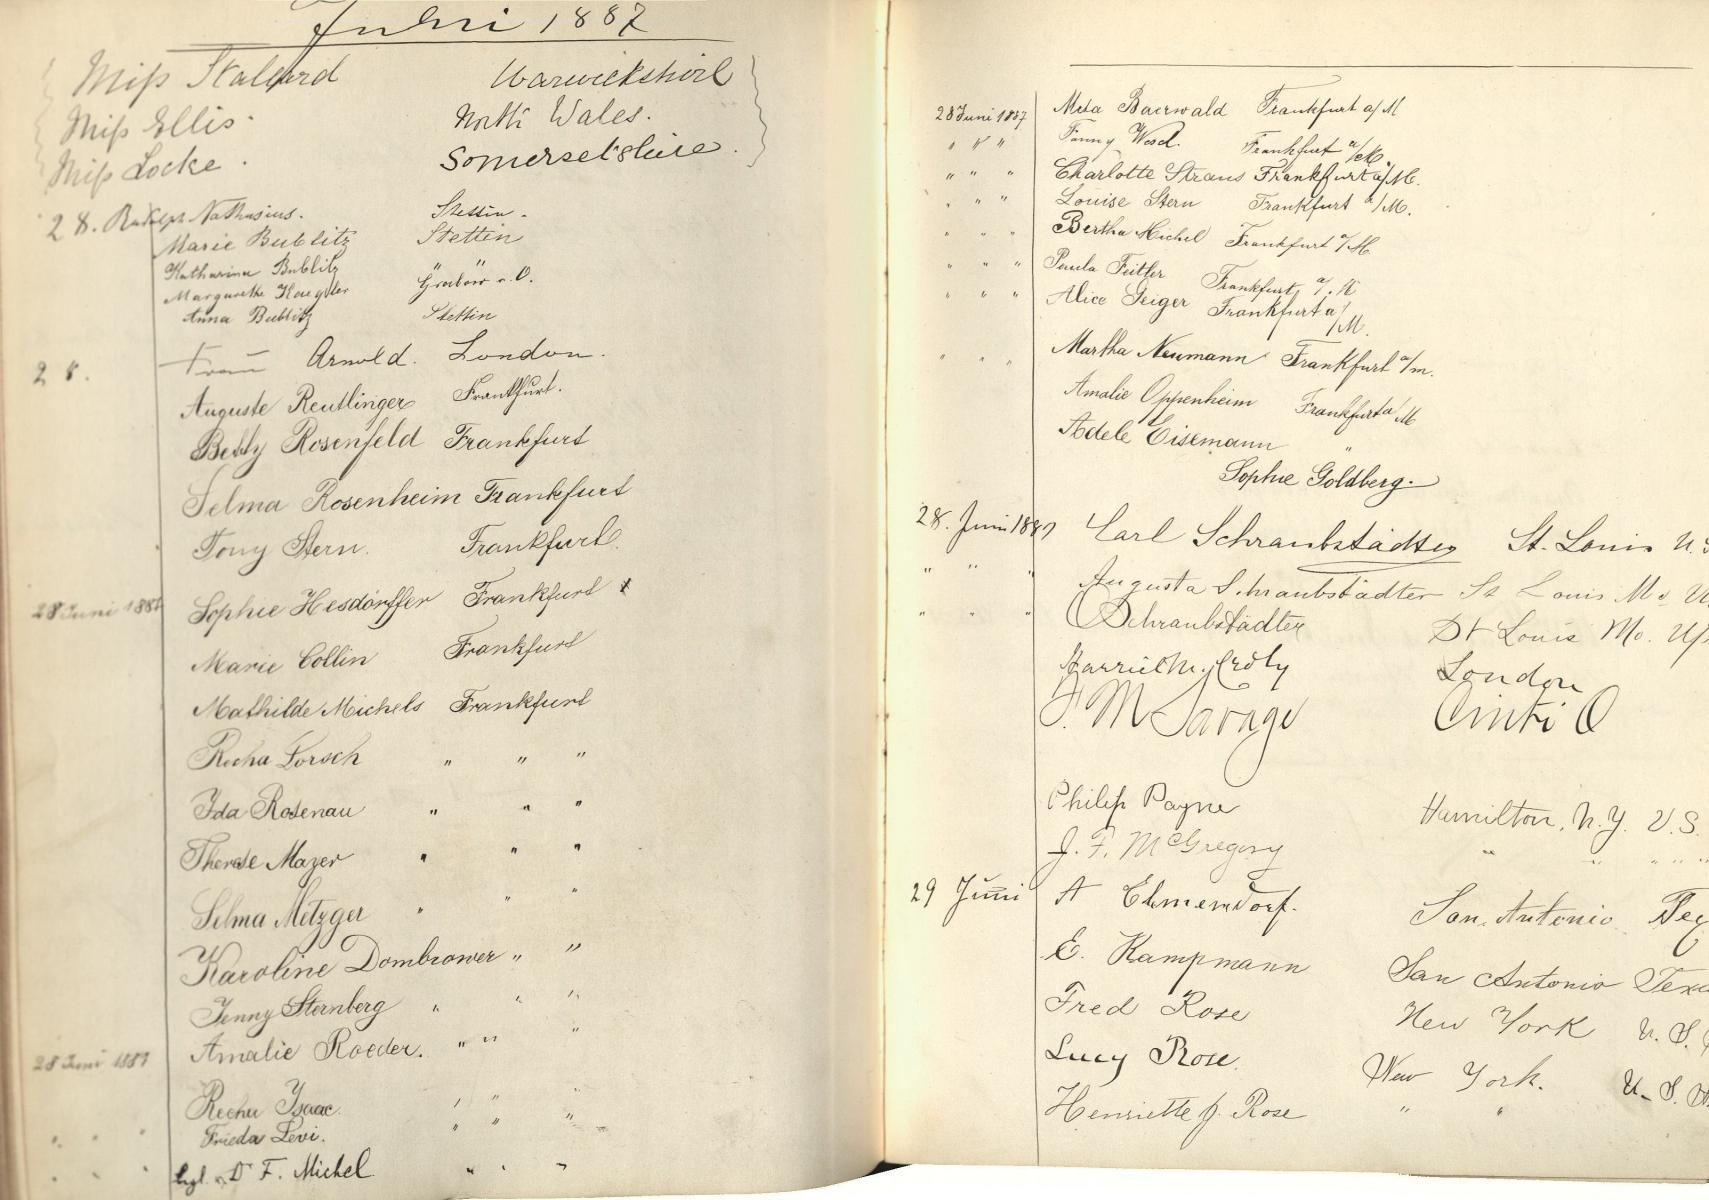 Juni 1887
Miss Stallard Warwickshire
Miss Ellis. North Wales.
Miss Locke. Somersetshire.
28. Rudolph Nathusius. Stettin.
Marie Bublitz Stettin
Katharina Bublitz " "
Margarethe Grabow a. O.
Anna Bublitz Stettin
28. Frau Arnold. London.
Auguste Reutlinger Frankfurt.
Betty Rosenfeld Frankfurt
Selma Rosenheim Frankfurt
Tony Stern. Frankfurt.
28 Juni 1887 Sophie Hesdörffer Frankfurt
Marie Collin Frankfurt
Mathilde Michels Frankfurt
Recha Lorsch " " "
Ida Rosenau " " "
Therese Mayer " " "
Selma Metzger " " "
Karoline Dombrower " "
Jenny Sternberg " " "
Amalie Roeder. " " "
28 Juni 1887
Recha Isaac " " "
" " " Frieda Levi. " " "
" " " Dr F. Michel " " "
28 Juni 1887 Meta Baerwald Frankfurt a/M
" " " Fanny Frankfurt a/M.
" " " Charlotte Straus Frankfurt a/M.
" " " Louise Stern Frankfurt a/M.
" " " Bertha Michel Frankfurt a/M.
" " " Paula Feitler Frankfurt a/M
" " " Alice Geiger Frankfurt a/M.
" " " Martha Neumann Frankfurt a/m.
Amalie Oppenheim Frankfurt a/M
Adele Eisemann "
Sophie Goldberg.
28. Juni 1887 Carl Schraubstädter St. Louis U.S
" " " Augusta Schraubstädter St Louis Mo U
" " " Schraubstädter St Louis Mo. U
Harriet M. Croly London
F. M Savage Cinti O
Philip Payne Hamilton, N.Y. U.S.
J. F. McGregory " " " "
29 Juni A Elmendorf. San. Antonio Tex
E. Kampmann San Antonio Texa
Fred Rose New York U.S.
Lucy Rose. New York. U.S.A
Henriette J. Rose " "